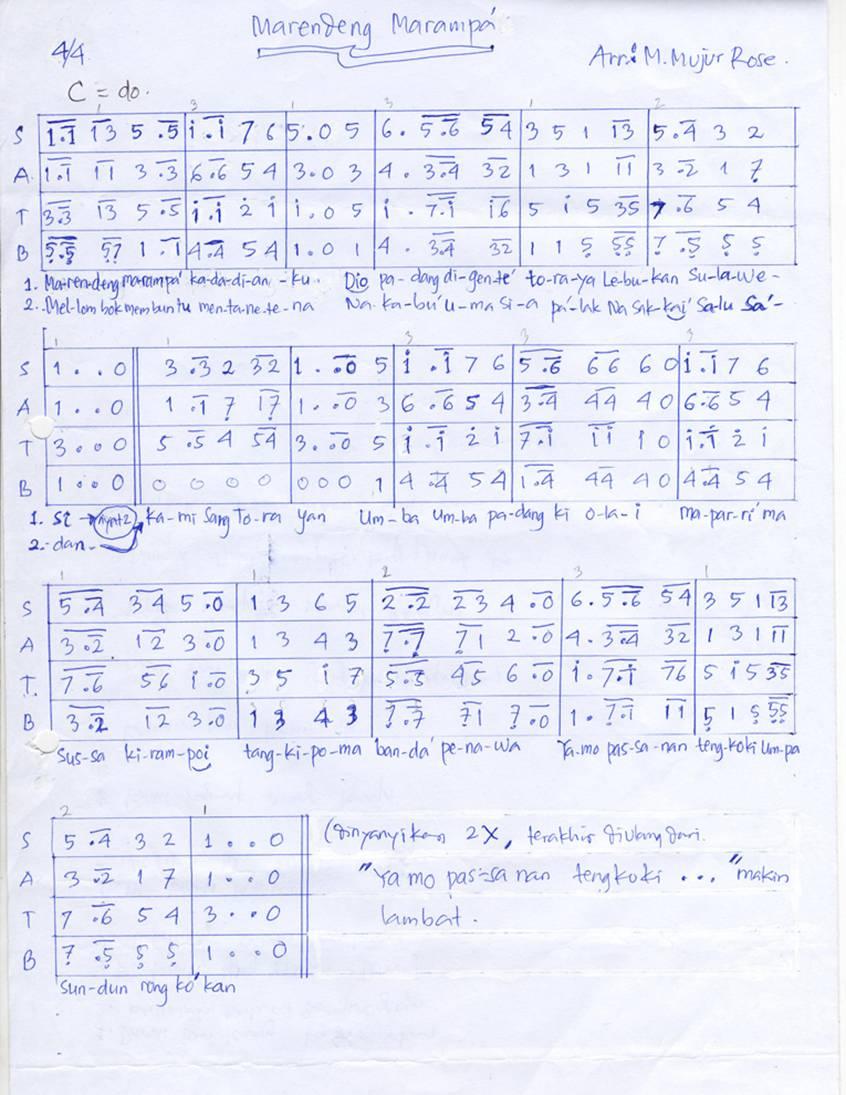 Marendeng Marampá
4/4
Arr: M. Mujur Rose.
C = do.
S 1.1 13 5 .5 | i .i 7 6 | 5 . 0 5 | 6 . 5.6 54 | 3 5 1 13 | 5 .4 3 2
A. 1.1 11 3 .3 | 6 .6 5 4 | 3 . 0 3 | 4 . 3.4 32 | 1 3 1 11 | 3 .2 1 7
T 3.3 13 5 .5 | i .i 2 i | i . 0 5 | i . 7.i i6 | 5 i 5 35 | 7 .6 5 4
B 5.5 57 1 .1 | 4 .4 5 4 | 1 . 0 1 | 4 . 3.4 32 | 1 1 5 55 | 7 .5 5 5
1. Ma-ren-deng marampa' ka-da-di-an -ku. Dio pa-dang di-gen-te' to-ra-ya Le-bu-kan Su-la-we-
2. Mel-lom bok mem bun tu men-ta-ne-te-na Na ka-bu'u-ma si-a pa'-lak Na Sak-kai' Sa-lu Sa'-
S 1 . . 0 | 3 .3 2 32 | 1 . .0 5 | i .i 7 6 | 5.6 66 6 0 | i .i 7 6
A 1 . . 0 | 1 .1 7 17 | 1 . .0 3 | 6 .6 5 4 | 3.4 44 4 0 | 6 .6 5 4
T 3 . . 0 | 5 .5 4 54 | 3 . .0 5 | i .i 2 i | 7.i ii i 0 | i .i 2 i
B 1 . . 0 | 0 0 0 0 | 0 0 0 1 | 4 .4 5 4 | 1.4 44 4 0 | 4 .4 5 4
1. si ka-mi Sang To-ra yan Um-ba Um-ba pa-dang ki o-la-i ma-par-ri'ma
2.-dan-
S 5.4 34 5 .0 | 1 3 6 5 | 2.2 23 4 .0 | 6 . 5.6 54 | 3 5 1 13
A 3.2 12 3 .0 | 1 3 4 3 | 7.7 71 2 .0 | 4 . 3.4 32 | 1 3 1 11
T. 7.6 56 i .0 | 3 5 i 7 | 5.5 45 6 .0 | i . 7.i 76 | 5 i 5 35
B 3.2 12 3 .0 | 1 3 4 3 | 7.7 71 7 .0 | 1 . 7.1 11 | 5 1 5 55
Sus-sa ki-ram-poi tang-ki-po-ma ban-da' pe-na-wa Ya-mo pas-sa-nan teng-koki Um-pa
S 5 .4 3 2 | 1 . . 0
A 3 .2 1 7 | 1 . . 0
T 7 .6 5 4 | 3 . . 0
B 7 .5 5 5 | 1 . . 0
Sun-dun rong ko'kan
(dinyanyikan 2X, terakhir diulang dari.
"Ya mo pas-sa nan tengkoki ..." makin
lambat.